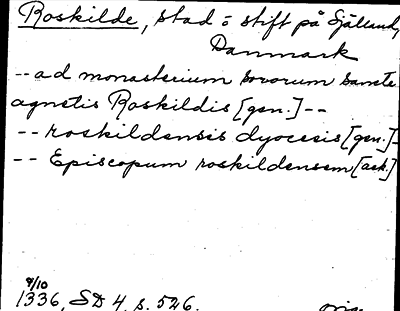 Roskilde, stad o stift på Själland,
Danmark
-- ad monasterium sororum sancte
agnetis Roskildis [gen.] --
-- roskildensis dyocesis [gen.] -
-- Episcopum roskildensem [ack.]
9/10
1336, SD 4, s. 526. orig.